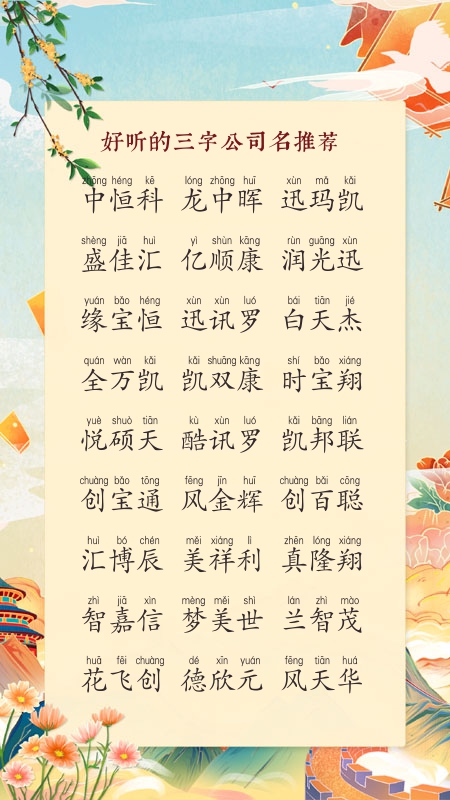 好听的三字公司名推荐
zhōng héng kē lóng zhōng huī xùn mǎ kǎi
中恒科 龙中晖 迅玛凯
shèng jiā huì yì shùn kāng rùn guāng xùn
盛佳汇 亿顺康 润光迅
yuán bǎo héng xùn xùn luó bái tiān jié
缘宝恒 迅讯罗 白天杰
quán wàn kǎi kǎi shuāng kāng shí bǎo xiáng
全万凯 凯双康 时宝翔
yuè shuò tiān kù xùn luó kǎi bāng lián
悦硕天 酷讯罗 凯邦联
chuàng bǎo tōng fēng jīn huī chuàng bǎi cōng
创宝通 风金辉 创百聪
huì bó chén měi xiáng lì zhēn lóng xiáng
汇博辰 美祥利 真隆翔
zhì jiā xìn mèng měi shì lán zhì mào
智嘉信 梦美世 兰智茂
huā fēi chuàng dé xīn yuán fēng tiān huá
花飞创 德欣元 风天华